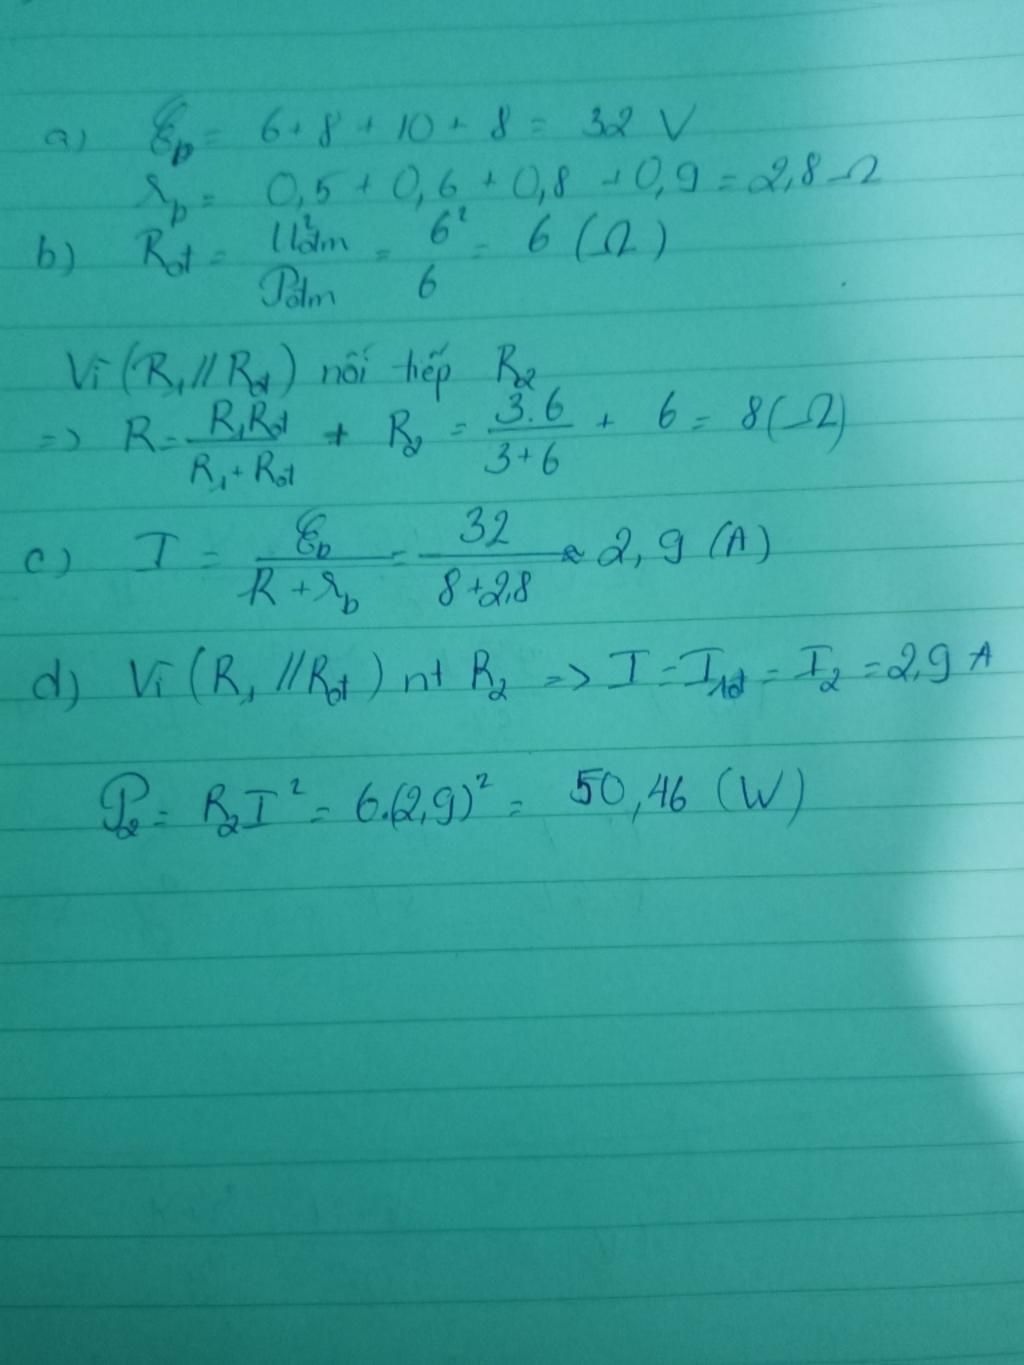 a) ℰb = 6 + 8 + 10 + 8 = 32 V
rb = 0,5 + 0,6 + 0,8 + 0,9 = 2,8 Ω
b) Rđ = U²đm / Pđm = 6² / 6 = 6 (Ω)
Vì (R1 // Rđ) nối tiếp R2
=> R = R1Rđ / R1 + Rđ + R2 = 3.6 / 3+6 + 6 = 8 (Ω)
c) I = ℰb / R + rb = 32 / 8+2,8 ≈ 2,9 (A)
d) Vì (R1 // Rđ) nt R2 => I = I1đ = I2 = 2,9 A
P2 = R2I² = 6.(2,9)² = 50,46 (W)